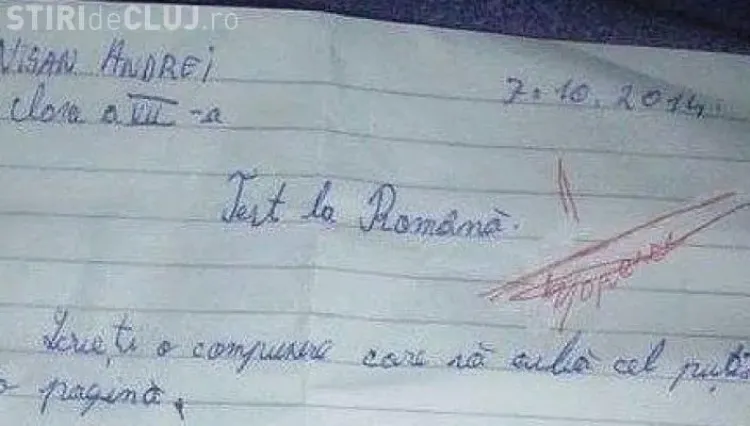 STIRIdeCLUJ.ro
VISAN ANDREI
7.10.2014.
clasa a VII-a
Test la Română.
Scrieți o compunere care să aibă cel puțin
o pagină.